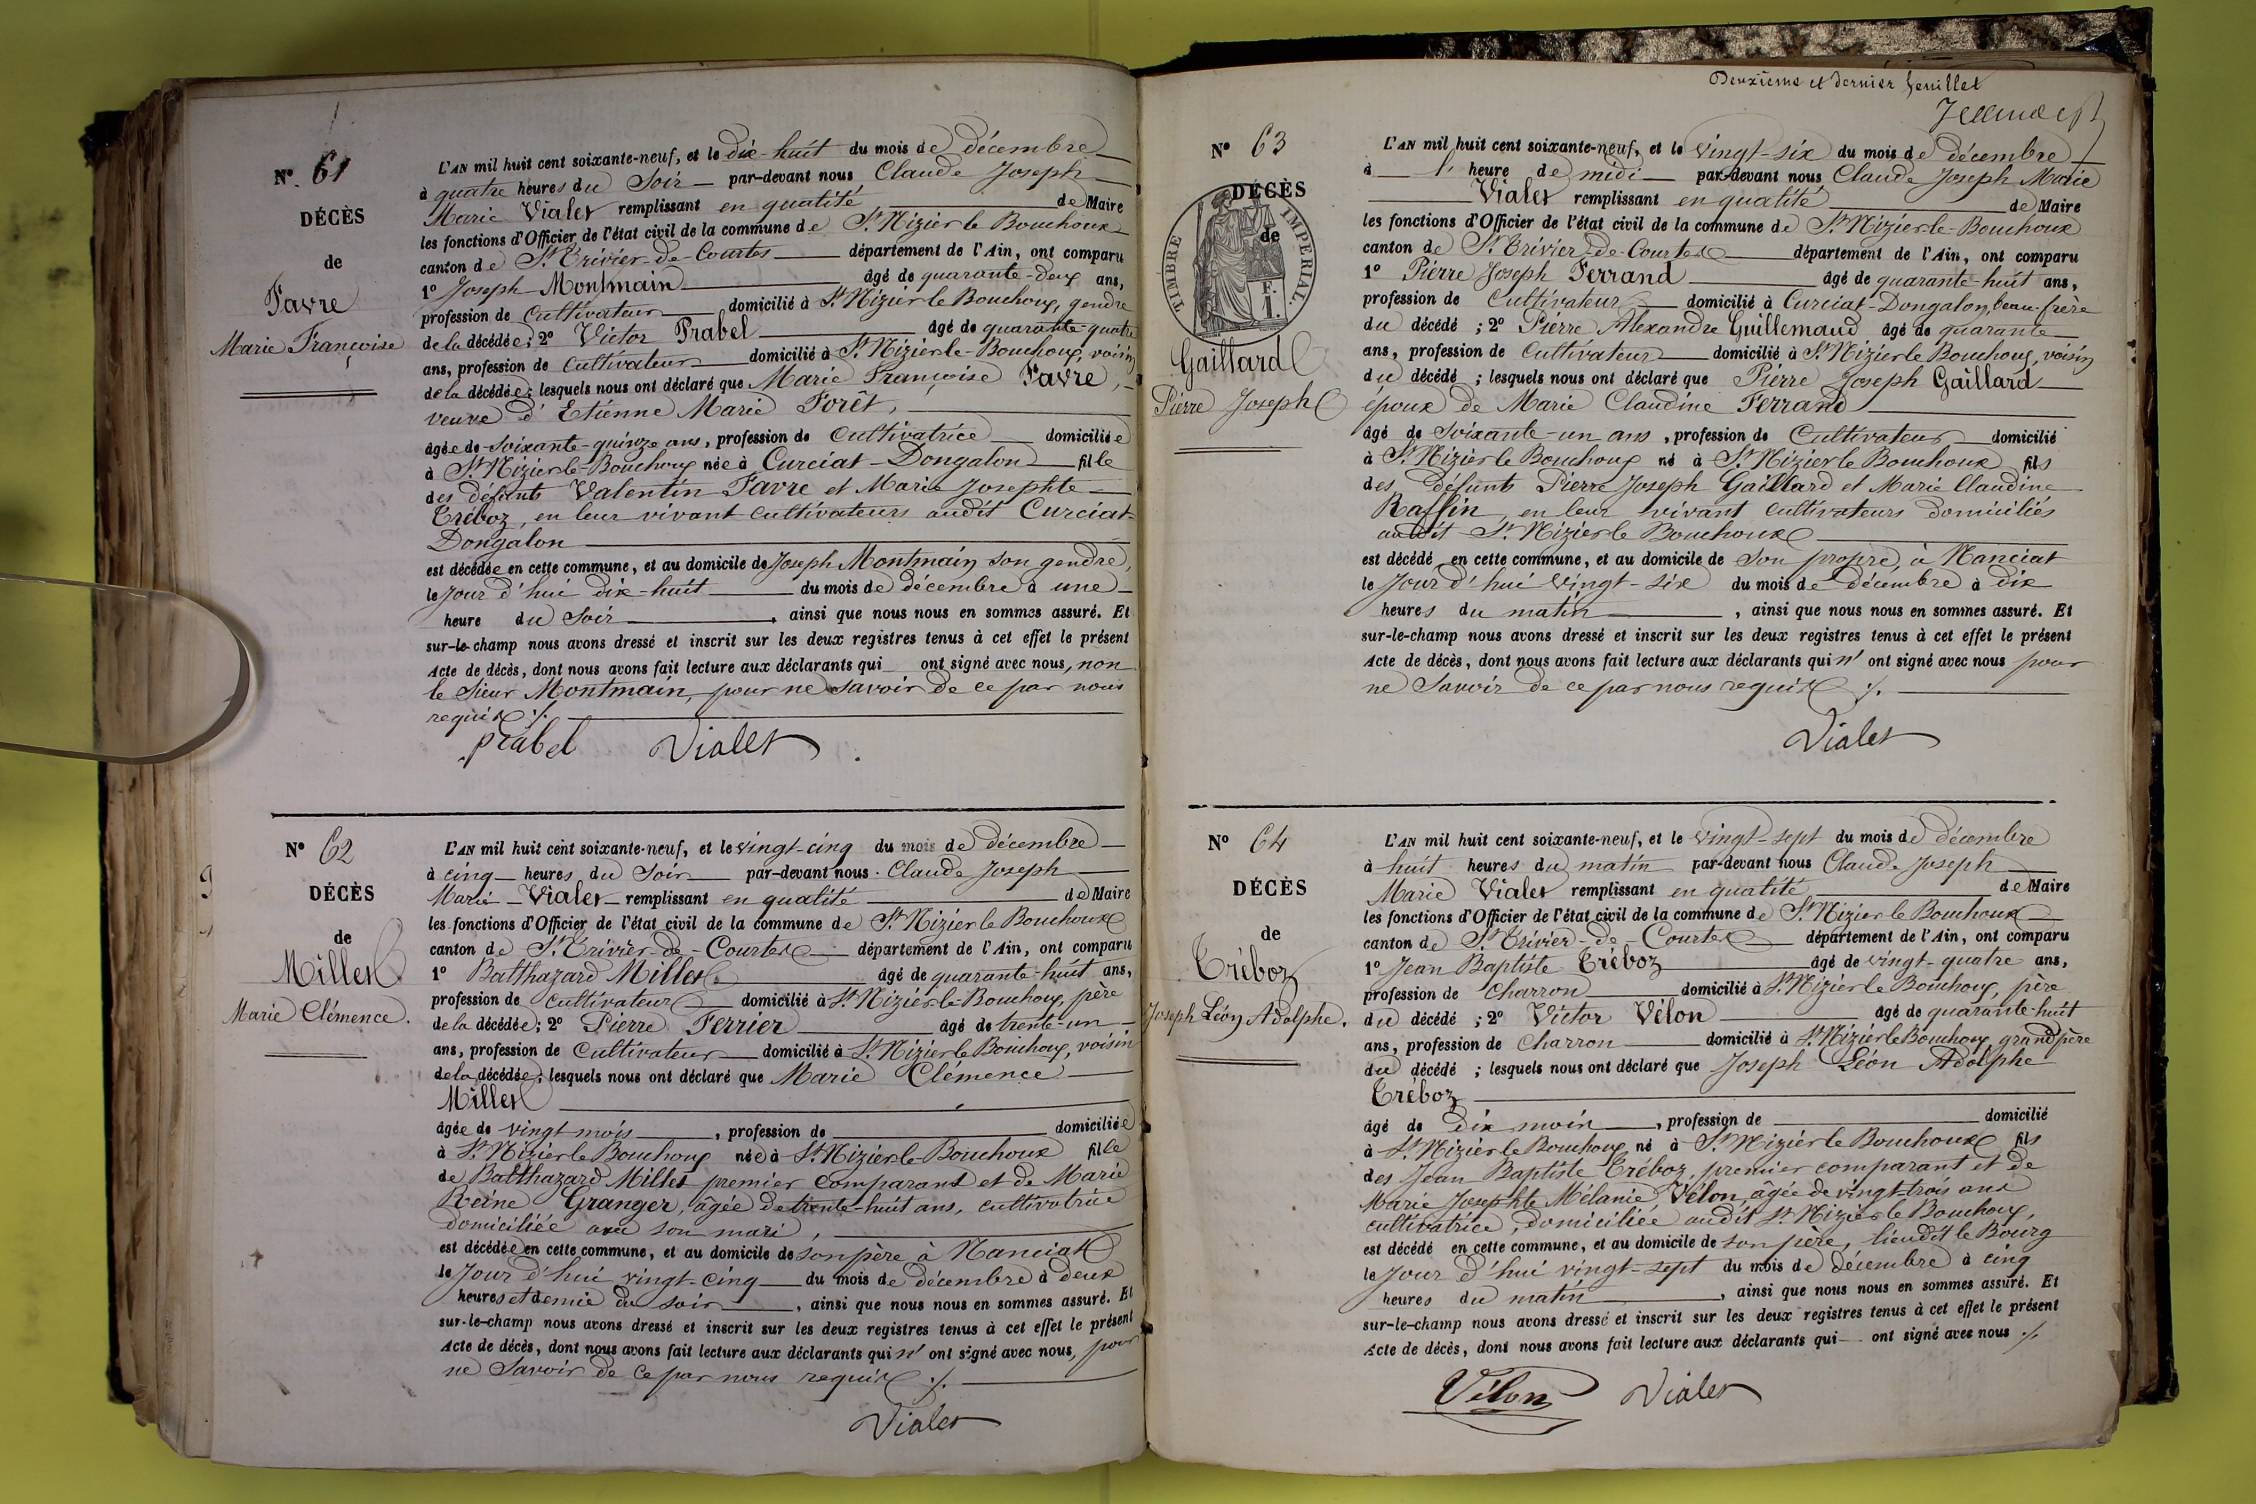 Nº 61
DÉCÈS
de
Favre
Marie Françoise
L'AN mil huit cent soixante-neuf, et le dix-huit du mois de décembre
à quatre heures du Soir par-devant nous Claude Joseph
Marie Vialet remplissant en qualité de Maire
les fonctions d'Officier de l'état civil de la commune de St Nizier le Bouchoux
canton de St Trivier-de-Courtes département de l'Ain, ont comparu
1º Joseph Montmain âgé de quarante-deux ans,
profession de Cultivateur domicilié à St Nizier le Bouchoux, gendre
de la décédée; 2º Victor Prabel âgé de quarante-quatre
ans, profession de Cultivateur domicilié à St Nizier le Bouchoux, voisin
de la décédée; lesquels nous ont déclaré que Marie Françoise Favre,
veuve d'Etienne Marie Forêt,
âgée de soixante-quinze ans, profession de Cultivatrice domiciliée
à St Nizier le Bouchoux née à Curciat-Dongalon fille
des défunts Valentin Favre et Marie Josephte
Tréboz, en leur vivant cultivateurs audit Curciat-
Dongalon
est décédée en cette commune, et au domicile de Joseph Montmain son gendre,
le Jour d'hui dix-huit du mois de décembre à une
heure du Soir, ainsi que nous nous en sommes assuré. Et
sur-le-champ nous avons dressé et inscrit sur les deux registres tenus à cet effet le présent
Acte de décès, dont nous avons fait lecture aux déclarants qui ont signé avec nous, non
le Sieur Montmain, pour ne savoir de ce par nous
requis ./.
prabel Vialet
Nº 62
DÉCÈS
de
Millet
Marie Clémence.
L'AN mil huit cent soixante-neuf, et le vingt-cinq du mois de décembre
à cinq heures du Soir par-devant nous Claude Joseph
Marie Vialet remplissant en qualité de Maire
les fonctions d'Officier de l'état civil de la commune de St Nizier le Bouchoux
canton de St Trivier-de-Courtes département de l'Ain, ont comparu
1º Balthazard Millet âgé de quarante-huit ans,
profession de Cultivateur domicilié à St Nizier-le-Bouchoux, père
de la décédée; 2º Pierre Ferrier âgé de trente-un
ans, profession de Cultivateur domicilié à St Nizier le Bouchoux, voisin
de la décédée; lesquels nous ont déclaré que Marie Clémence
Millet
âgée de vingt mois, profession de domiciliée
à St Nizier le Bouchoux née à St Nizier-le-Bouchoux fille
de Balthazard Millet premier comparant et de Marie
Reine Granger, âgée de trente-huit ans, cultivatrice
domiciliée avec son mari,
est décédée en cette commune, et au domicile de son père à Nanciat
le Jour d'hui vingt-cinq du mois de décembre à deux
heures et demie du soir, ainsi que nous nous en sommes assuré. Et
sur-le-champ nous avons dressé et inscrit sur les deux registres tenus à cet effet le présent
Acte de décès, dont nous avons fait lecture aux déclarants qui n'ont signé avec nous, pour
ne Savoir de ce par nous requis ./.
Vialet
Deuxième et dernier feuillet
Nº 63
DÉCÈS
de
TIMBRE IMPERIAL.
F.
1.
Gaillard
Pierre Joseph
L'AN mil huit cent soixante-neuf, et le vingt-six du mois de décembre
à l'heure de midi par-devant nous Claude Joseph Marie
Vialet remplissant en qualité de Maire
les fonctions d'Officier de l'état civil de la commune de St Nizier-le-Bouchoux
canton de St Trivier-de-Courtes département de l'Ain, ont comparu
1º Pierre Joseph Ferrand âgé de quarante-huit ans,
profession de Cultivateur domicilié à Curciat-Dongalon, beau-frère
du décédé; 2º Pierre Alexandre Guillemaud âgé de quarante
ans, profession de Cultivateur domicilié à St Nizier le Bouchoux, voisin
du décédé; lesquels nous ont déclaré que Pierre Joseph Gaillard
époux de Marie Claudine Ferrand
âgé de soixante-un ans, profession de Cultivateur domicilié
à St Nizier le Bouchoux né à St Nizier le Bouchoux fils
des défunts Pierre Joseph Gaillard et Marie Claudine
Raffin, en leur vivant cultivateurs domiciliés
audit St Nizier le Bouchoux
est décédé en cette commune, et au domicile de son propre, à Nanciat
le Jour d'hui vingt-six du mois de décembre à dix
heures du matin, ainsi que nous nous en sommes assuré. Et
sur-le-champ nous avons dressé et inscrit sur les deux registres tenus à cet effet le présent
Acte de décès, dont nous avons fait lecture aux déclarants qui n'ont signé avec nous pour
ne Savoir de ce par nous requis ./.
Vialet
Nº 64
DÉCÈS
de
Tréboz
Joseph Léon Adolphe.
L'AN mil huit cent soixante-neuf, et le vingt-sept du mois de décembre
à huit heures du matin par-devant nous Claude Joseph
Marie Vialet remplissant en qualité de Maire
les fonctions d'Officier de l'état civil de la commune de St Nizier le Bouchoux
canton de St Trivier-de-Courtes département de l'Ain, ont comparu
1º Jean Baptiste Tréboz âgé de vingt-quatre ans,
profession de Charron domicilié à St Nizier le Bouchoux, père
du décédé; 2º Victor Vélon âgé de quarante-huit
ans, profession de Charron domicilié à St Nizier le Bouchoux grand père
du décédé; lesquels nous ont déclaré que Joseph Léon Adolphe
Tréboz
âgé de dix mois, profession de domicilié
à St Nizier le Bouchoux né à St Nizier le Bouchoux fils
des Jean Baptiste Tréboz, premier comparant et de
Marie Josephte Mélanie Vélon âgée de vingt-trois ans
cultivatrice, domiciliée audit St Nizier le Bouchoux,
est décédé en cette commune, et au domicile de son père, lieudit le Bourg
le Jour d'hui vingt-sept du mois de décembre à cinq
heures du matin, ainsi que nous nous en sommes assuré. Et
sur-le-champ nous avons dressé et inscrit sur les deux registres tenus à cet effet le présent
Acte de décès, dont nous avons fait lecture aux déclarants qui ont signé avec nous ./.
Vélon Vialet